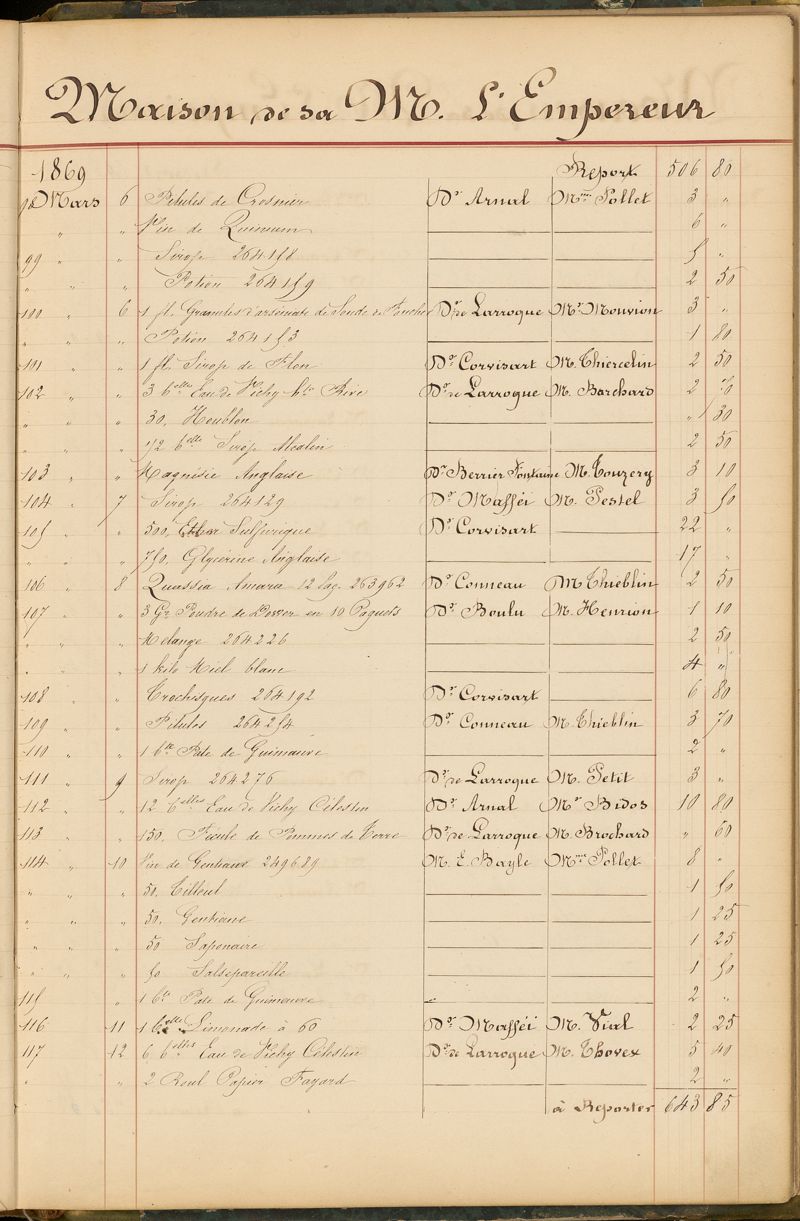 Maison de sa M. L'Empereur
1869 Report 506 80
98 Mars 6 Pilules de Cresnier Dr Arnal Mme Pollet 3 "
" " Vin de Quinium 6 "
99 " " Sirop 264158 5 "
" " " Potion 264159 2 50
100 " 6 1 fl. Granules d'arséniate de Soude de Dr de Larroque Mr Mouvion 3 "
" " " Potion 264153 1 80
101 " " 1 fl. Sirop de Flon Dr Corvisart M. Thiercelin 2 50
102 " " 3 blles Eau de Vichy hte Rive Dr de Larroque M. Barchard 2 70
" " " 30, Houblon " 30
" " " 1/2 blle Sirop Alcalin 2 50
103 " " Magnésie Anglaise Dr Berrier Fontaine M. Touzery 3 10
104 " 7 Sirop 264129 Dr Mafféi M. Pestel 3 50
105 " " 500, Ether Sulfurique Dr Corvisart 22 "
" " " 750, Glycérine Anglaise 17 "
106 " 8 Quassia Amara 12 Paq. 263962 Dr Conneau M Thieblin 2 50
107 " " 3 Gr Poudre de Dower en 10 Paquets Dr Boulu M. Henrion 1 10
" " " Mélange 264226 2 50
" " " 1 kilo Miel blanc 4 "
108 " " Trochisques 264192 Dr Corvisart 6 80
109 " " Pilules 264254 Dr Conneau M. Thieblin 3 70
110 " " 1 bte Pâte de Guimauve 2 "
111 " 9 Sirop 264276 Dr de Larroque M. Petit 3 "
112 " " 12 blles Eau de Vichy Célestin Dr Arnal Mr Bidos 10 80
113 " " 150. Fécule de Pommes de Terre Dr de Larroque M. Brochard " 60
114 " 10 Vin de Gentiane 249689 M. E. Bayle Mme Pollet 8 "
" " " 50. Tilleul 1 50
" " " 50. Gentiane 1 25
" " " 50 Saponaire 1 25
" " " 50 Salsepareille 1 50
115 " 1 bte Pâte de Guimauve 2 "
116 " 11 1 blle Limonade à 60 Dr Mafféi M. Vial 2 25
117 " 12 6 blles Eau de Vichy Célestin Dr de Larroque M. Thovex 5 40
" " 2 Roul Papier Fayard 2 "
à Reporter 643 85